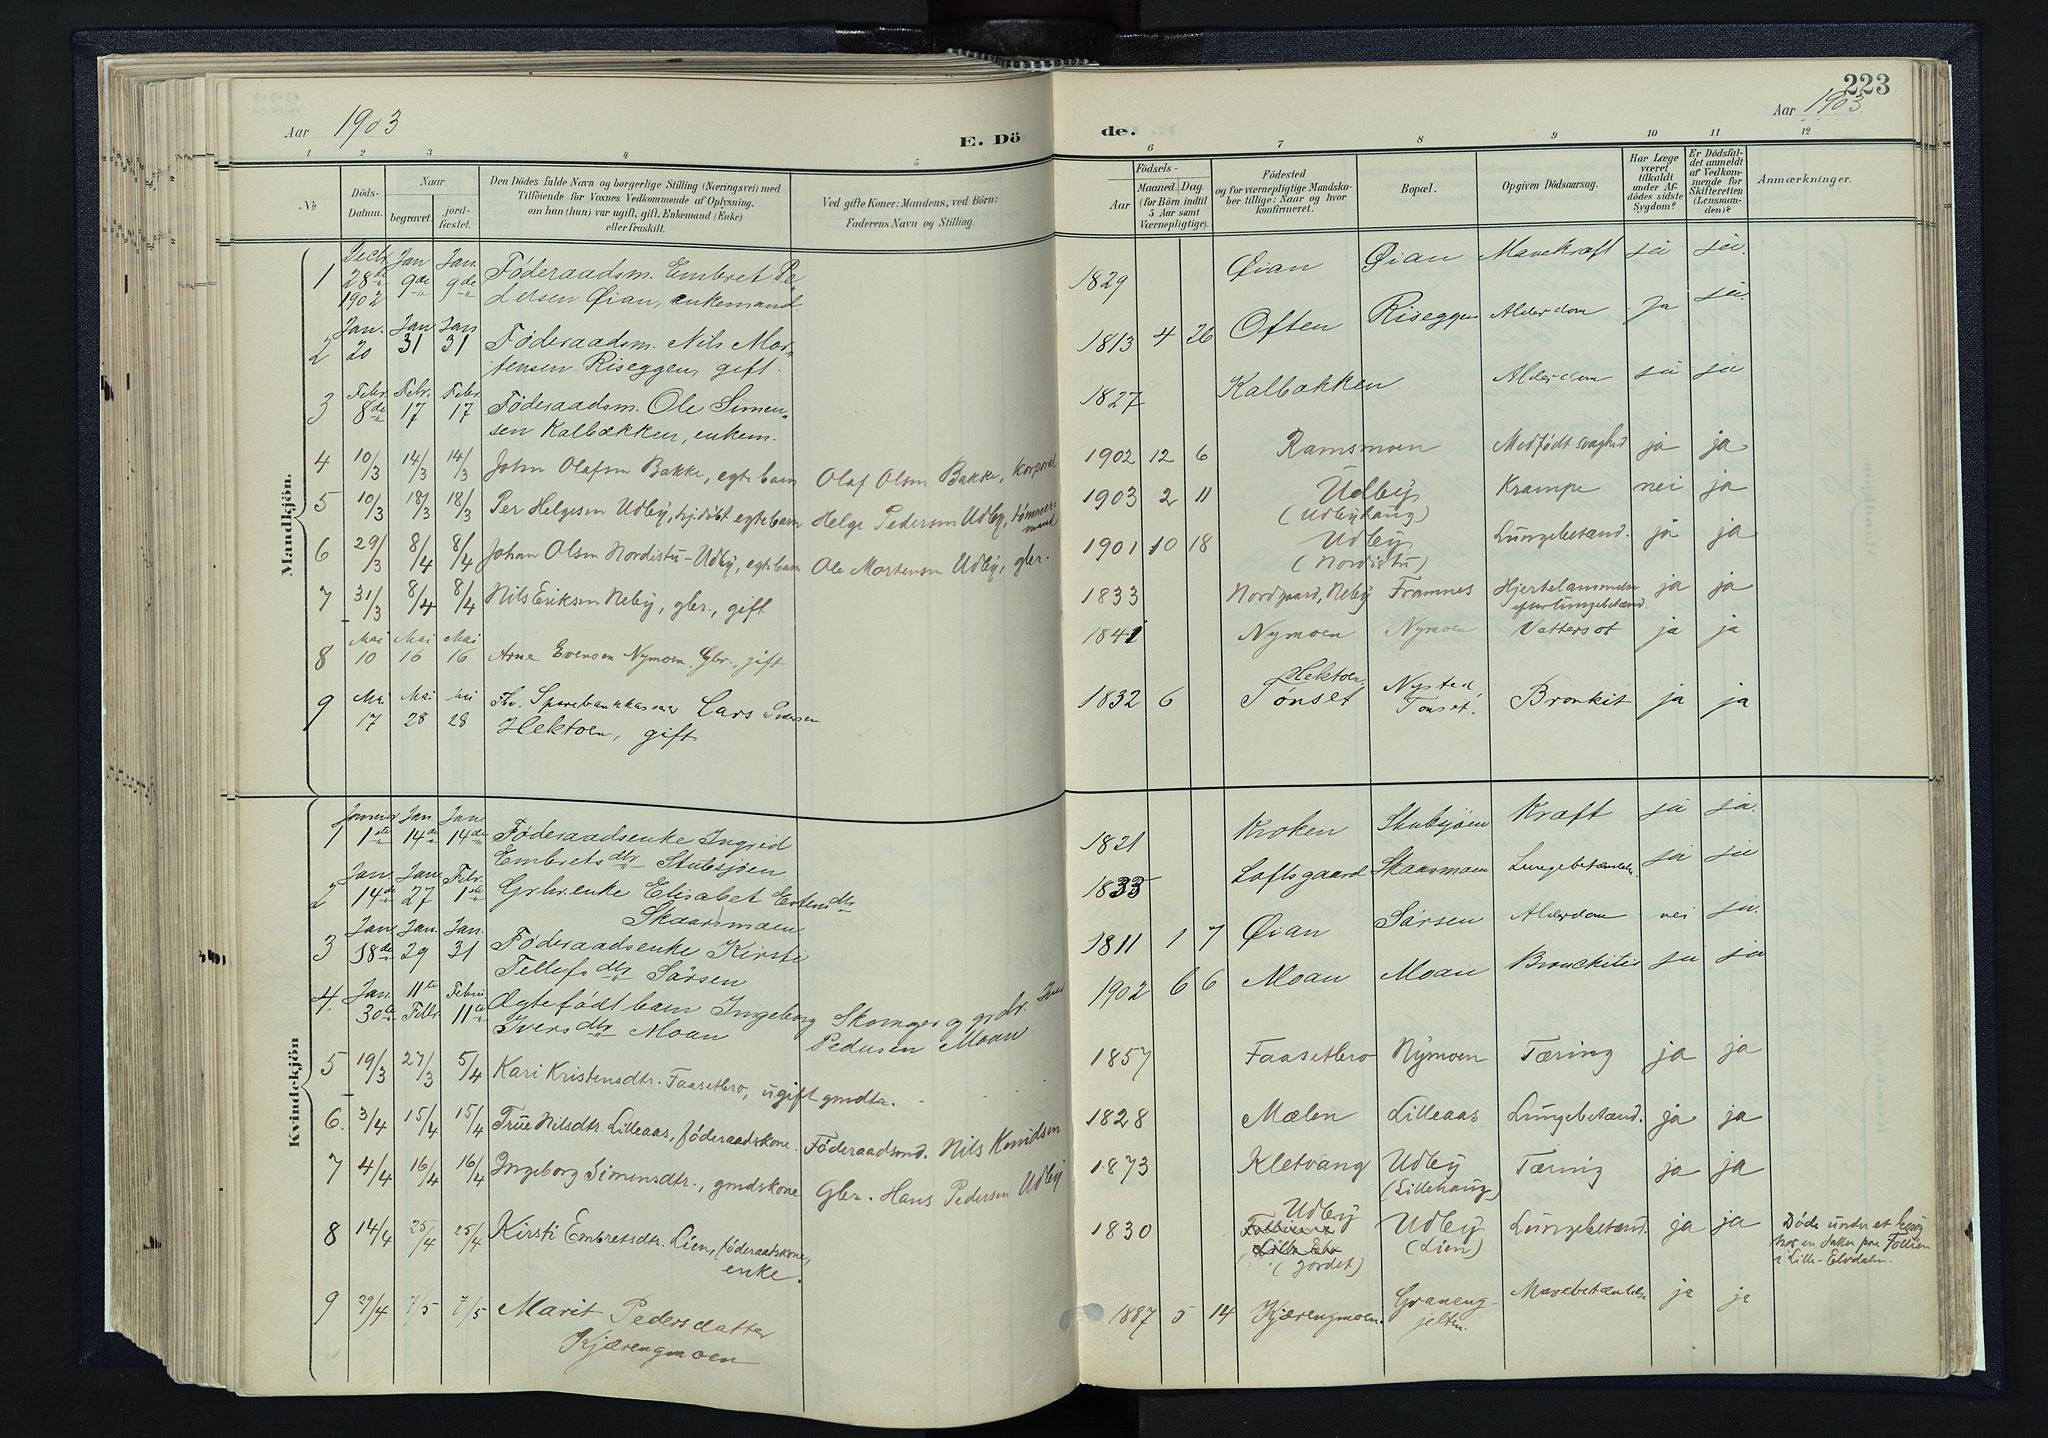 223
Aar 1903
E. Döde.
Aar 1903.
1 2 3 4 5 6 7 8 9 10 11 12
№
Döds-Datum.
Naar
begravet.
jord-fæstet.
Den Dödes fulde Navn og borgerlige Stilling (Næringsvei) med
Tilföiende for Voxnes Vedkommende af Oplysning,
om han (hun) var ugift, gift, Enkemand (Enke)
eller fraskilt.
Ved gifte Koner: Mandens, ved Börn:
Faderens Navn og Stilling.
Födsels-
Aar
Maaned. Dag.
(for Börn indtil
5 Aar samt
Værnepligtige).
Födested
og for værnepligtige Mandska-
ber tillige: Naar og hvor
konfirmeret.
Bopæl.
Opgiven Dödsaarsag.
Har Læge
været
tilkaldt
under Af-
dödes sidste
Sygdom?
Er Dödsfal-
det anmeldt
af Vedkom-
mende for
Skifteretten
(Lensman-
den)?
Anmærkninger.
Mandkjön.
1 Decbr. 28de 1902 Jan 9de Jan. 9de Föderaadsm. Embret Pe-
dersen Øian, enkemand. 1829 Øian Øian Mavekræft ja ja.
2 Jan. 20 Jan 31 Jan 31 Föderaadsm. Nils Mor-
tensen Riseggen, gift. 1813 4 26 Often Riseggen Alderdom ja ja.
3 Febr. 8de Febr. 17 Febr. 17 Föderaadsm. Ole Simen-
sen Kalbækken, enkem. 1827 Kalbækken Alderdom ja ja
4 10/3 14/3 14/3 John Olafsen Bakke, egte barn Olaf Olsen Bakke, korporal 1902 12 6 Ramsmoen Medfødt svaghed ja ja
5 10/3 18/3 18/3 Per Helgesen Udby, hj.døbt egtebarn Helge Pedersen Udby, tømmer-
mand 1903 2 11 Udby
(Udbyhaug) Krampe nei ja
6 29/3 8/4 8/4 Johan Olsen Nordistu-Udby, egtebarn Ole Mortensen Udby, gbr. 1901 10 18 Udby
(Nordistu) Lungebetænd. ja ja
7 31/3 8/4 8/4 Nils Eriksen Neby, gbr., gift 1833 Nordgaard, Neby Framnes Hjertelammelse
efter lungebetænd. ja ja
8 Mai 10 Mai 16 Mai 16 Arne Evensen Nymoen, Gbr., gift 1841 Nymoen Nymoen Vattersot ja ja
9 Mai 17 Mai 28 Mai 28 Fhv. Sparebankkasserer Lars Pedersen
Hektoen, gift 1832 6 Hektoen,
Tønset Nysted,
Tønset. Bronkit ja ja
Kvindekjön
1 Januar 1ste Jan 14de Jan. 14de Föderaadsenke Ingrid
Embretsdtr Stubsjøen 1821 Kroken Stubsjøen Kræft ja ja.
2 Jan. 14de Jan. 27 Febr. 1ste Grbr.enke Elisabet Estensdtr
Skaarsmoen 1835 Loftsgaard Skaarsmoen Lungebetændelse ja ja
3 Jan 18de Jan. 29 Jan. 31 Föderaadsenke Kirsti
Tellefsdtr Sørsen 1811 1 7 Øian Sørsen Alderdom nei ja.
4. Jan. 30te 11te Febr. Febru 11te Ægtefødt barn Ingeborg
Iversdtr Moan Skomager og grbr. Iver
Pedersen Moan 1902 6 6 Moan Moan Bronchitis ja ja
5 19/3 27/3 5/4 Kari Kristensdtr. Faasetbro, ugift gmdtr. 1857 Faasetbro Nymoen Tæring ja ja
6. 3/4 15/4 15/4 True Nilsdtr. Lilleaas, føderaadskone. Föderaadsmd. Nils Knudsen 1828 Mælen Lilleaas Lungebetænd. ja ja
7 4/4 16/4 16/4 Ingeborg Simensdtr., gmdskone Gbr. Hans Pedersen Udby 1873 Kletvang Udby
(Lillehaug) Tæring ja ja
8 14/4 25/4 25/4 Kirsti Embretsdtr. Lien, føderaadskone,
enke. 1830 Udby
(Jordet) Udby
(Lien) Lungebetænd. ja ja Døde under et besøg
hos en datter paa Follien
i Lille-Elvdalen.
9 29/4 7/5 7/5 Marit Pedersdatter
Kjærengmoen 1887 5 14 Kjærengmoen. Graneng-
jelten. Mavebetændelse ja ja